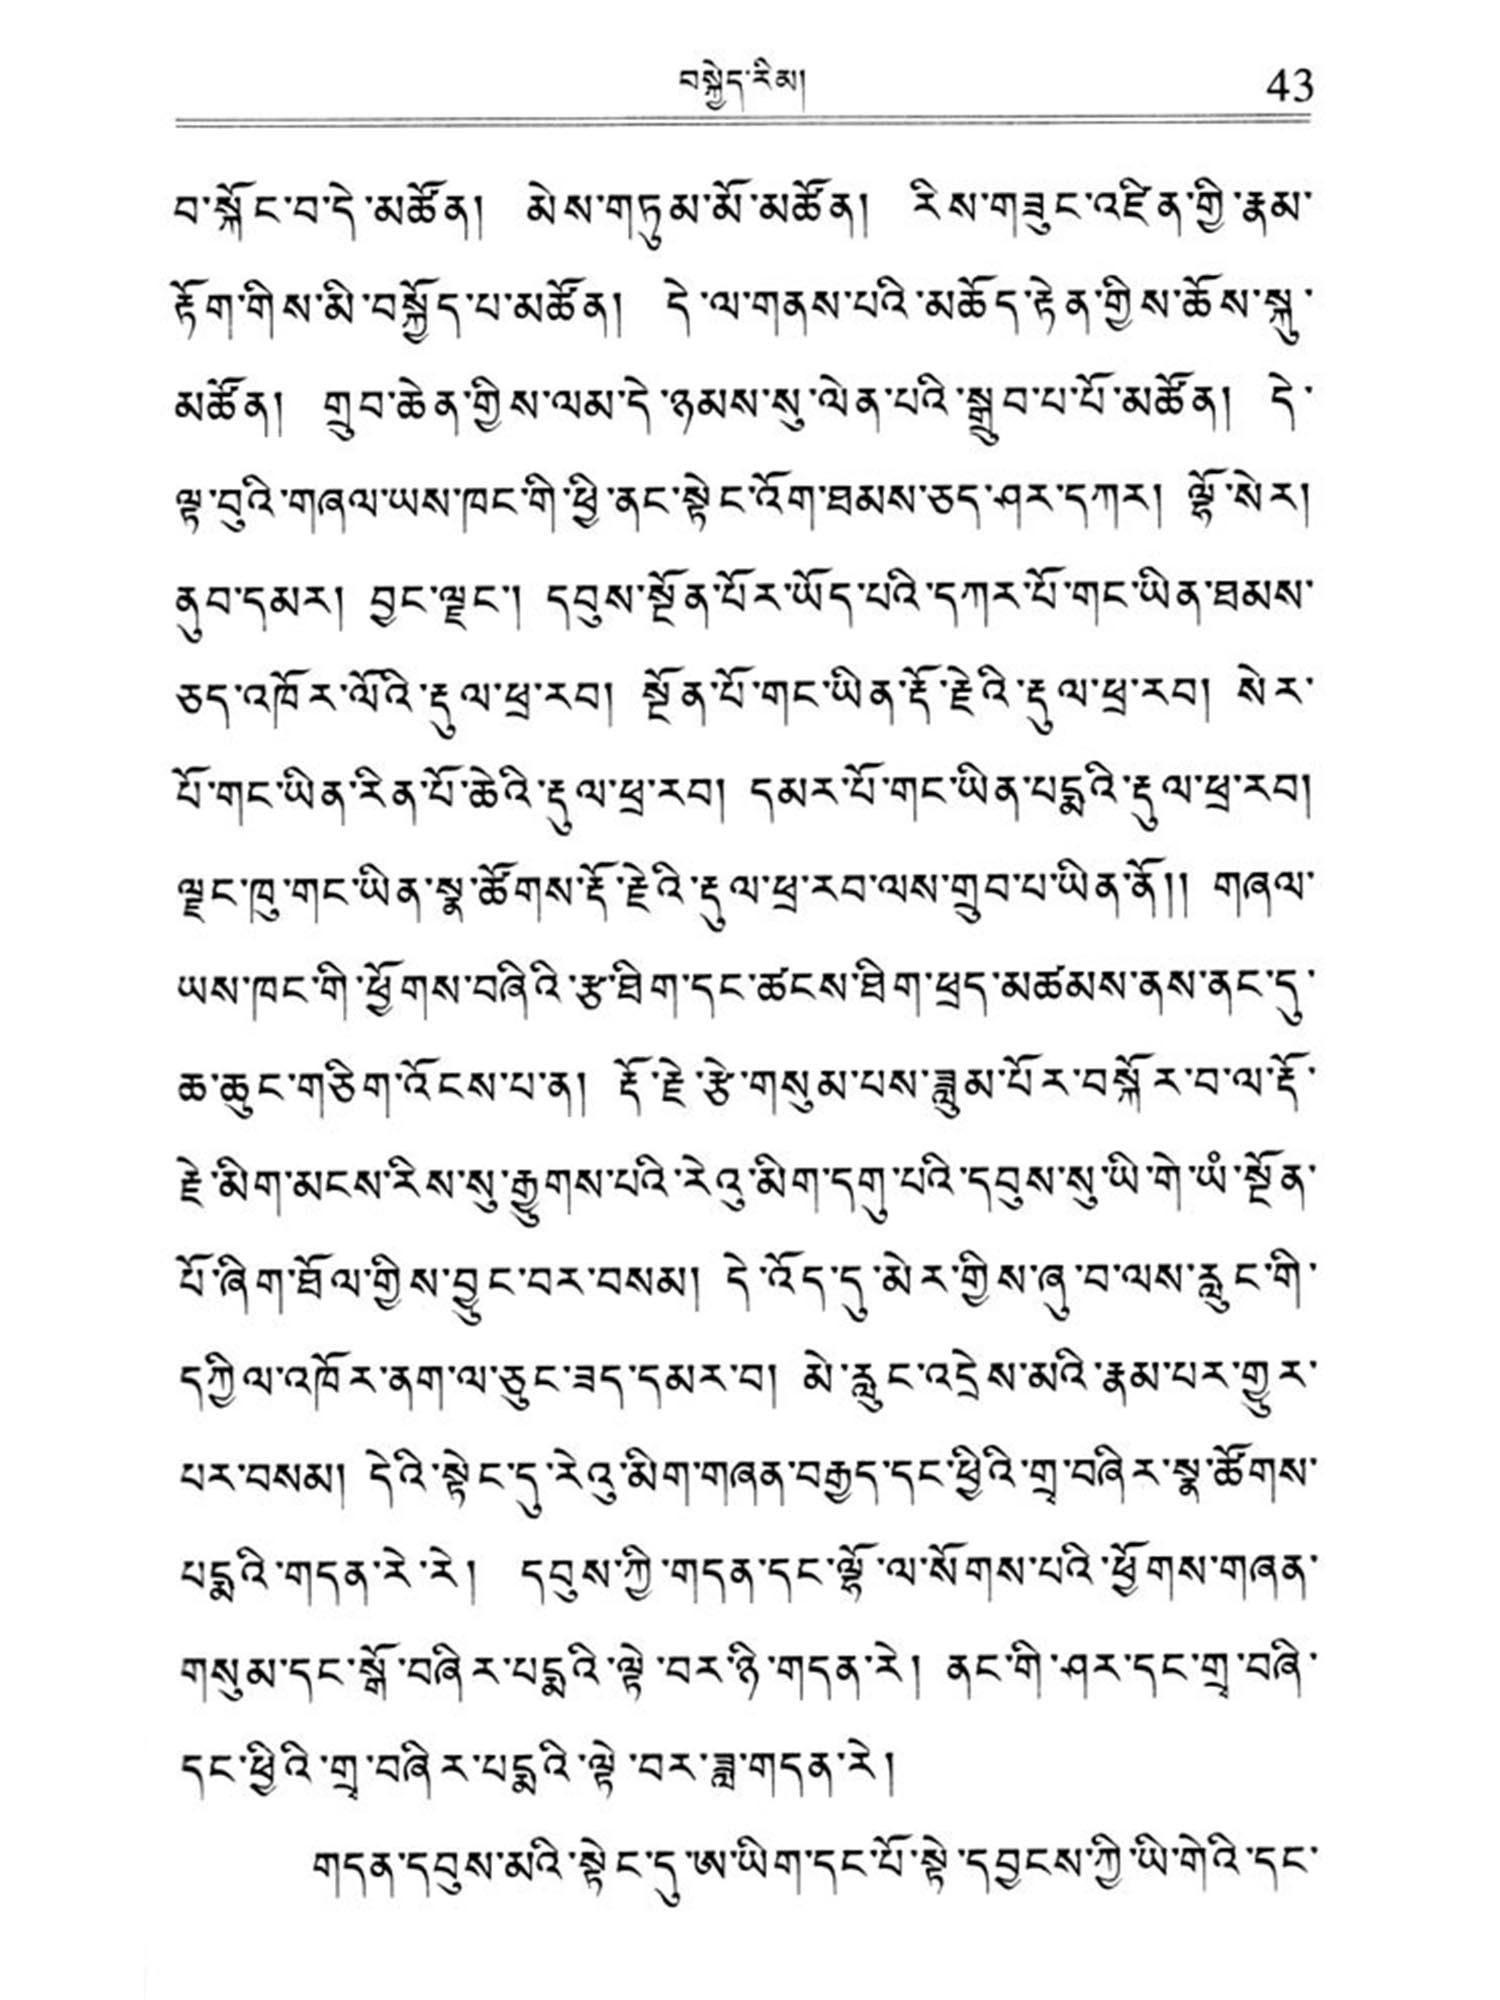 བསྐྱེད་རིམ། 43
བ་སྐོང་བ་དེ་མཚོན། མེས་གཏུམ་མོ་མཚོན། རིས་གཟུང་འཛིན་གྱི་རྣམ་
རྟོག་གིས་མི་བསྐྱོད་པ་མཚོན། དེ་ལ་གནས་པའི་མཆོད་རྟེན་གྱིས་ཆོས་སྐུ་
མཚོན། གྲུབ་ཆེན་གྱིས་ལམ་དེ་ཉམས་སུ་ལེན་པའི་སྒྲུབ་པ་པོ་མཚོན། དེ་
ལྟ་བུའི་གཞལ་ཡས་ཁང་གི་ཕྱི་ནང་སྟེང་འོག་ཐམས་ཅད་ཤར་དཀར། ལྷོ་སེར།
ནུབ་དམར། བྱང་ལྗང་། དབུས་སྔོན་པོར་ཡོད་པའི་དཀར་པོ་གང་ཡིན་ཐམས་
ཅད་འཁོར་ལོའི་རྡུལ་ཕྲ་རབ། སྔོན་པོ་གང་ཡིན་རྡོ་རྗེའི་རྡུལ་ཕྲ་རབ། སེར་
པོ་གང་ཡིན་རིན་པོ་ཆེའི་རྡུལ་ཕྲ་རབ། དམར་པོ་གང་ཡིན་པདྨའི་རྡུལ་ཕྲ་རབ།
ལྗང་ཁུ་གང་ཡིན་སྣ་ཚོགས་རྡོ་རྗེའི་རྡུལ་ཕྲ་རབ་ལས་གྲུབ་པ་ཡིན་ནོ།། གཞལ་
ཡས་ཁང་གི་ཕྱོགས་བཞིའི་རྩ་ཐིག་དང་ཚངས་ཐིག་ཕྲད་མཚམས་ནས་ནང་དུ་
ཆ་ཆུང་གཅིག་འོངས་པ་ན། རྡོ་རྗེ་རྩེ་གསུམ་པས་ཟླུམ་པོར་བསྐོར་བ་ལ་རྡོ་
རྗེ་མིག་མངས་རིས་སུ་རྒྱུགས་པའི་རེའུ་མིག་དགུ་པའི་དབུས་སུ་ཡི་གེ་ཡཾ་སྔོན་
པོ་ཞིག་ཐོལ་གྱིས་བྱུང་བར་བསམ། དེ་འོད་དུ་མེར་གྱིས་ཞུ་བ་ལས་རླུང་གི་
དཀྱིལ་འཁོར་ནག་ལ་ཅུང་ཟད་དམར་བ། མེ་རླུང་འདྲེས་མའི་རྣམ་པར་གྱུར་
པར་བསམ། དེའི་སྟེང་དུ་རེའུ་མིག་གཞན་བརྒྱད་དང་ཕྱིའི་གྲྭ་བཞིར་སྣ་ཚོགས་
པདྨའི་གདན་རེ་རེ། དབུས་ཀྱི་གདན་དང་ལྷོ་ལ་སོགས་པའི་ཕྱོགས་གཞན་
གསུམ་དང་སྒོ་བཞིར་པདྨའི་ལྟེ་བར་ཉི་གདན་རེ། ནང་གི་ཤར་དང་གྲྭ་བཞི་
དང་ཕྱིའི་གྲྭ་བཞིར་པདྨའི་ལྟེ་བར་ཟླ་གདན་རེ།
གདན་དབུས་མའི་སྟེང་དུ་ཨ་ཡིག་དང་པོ་སྟེ་དབྱངས་ཀྱི་ཡི་གེའི་དང་